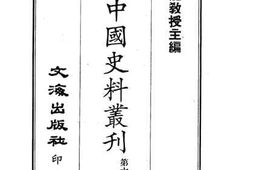 教授主編
中國史料叢刊
第
文海出版社 印